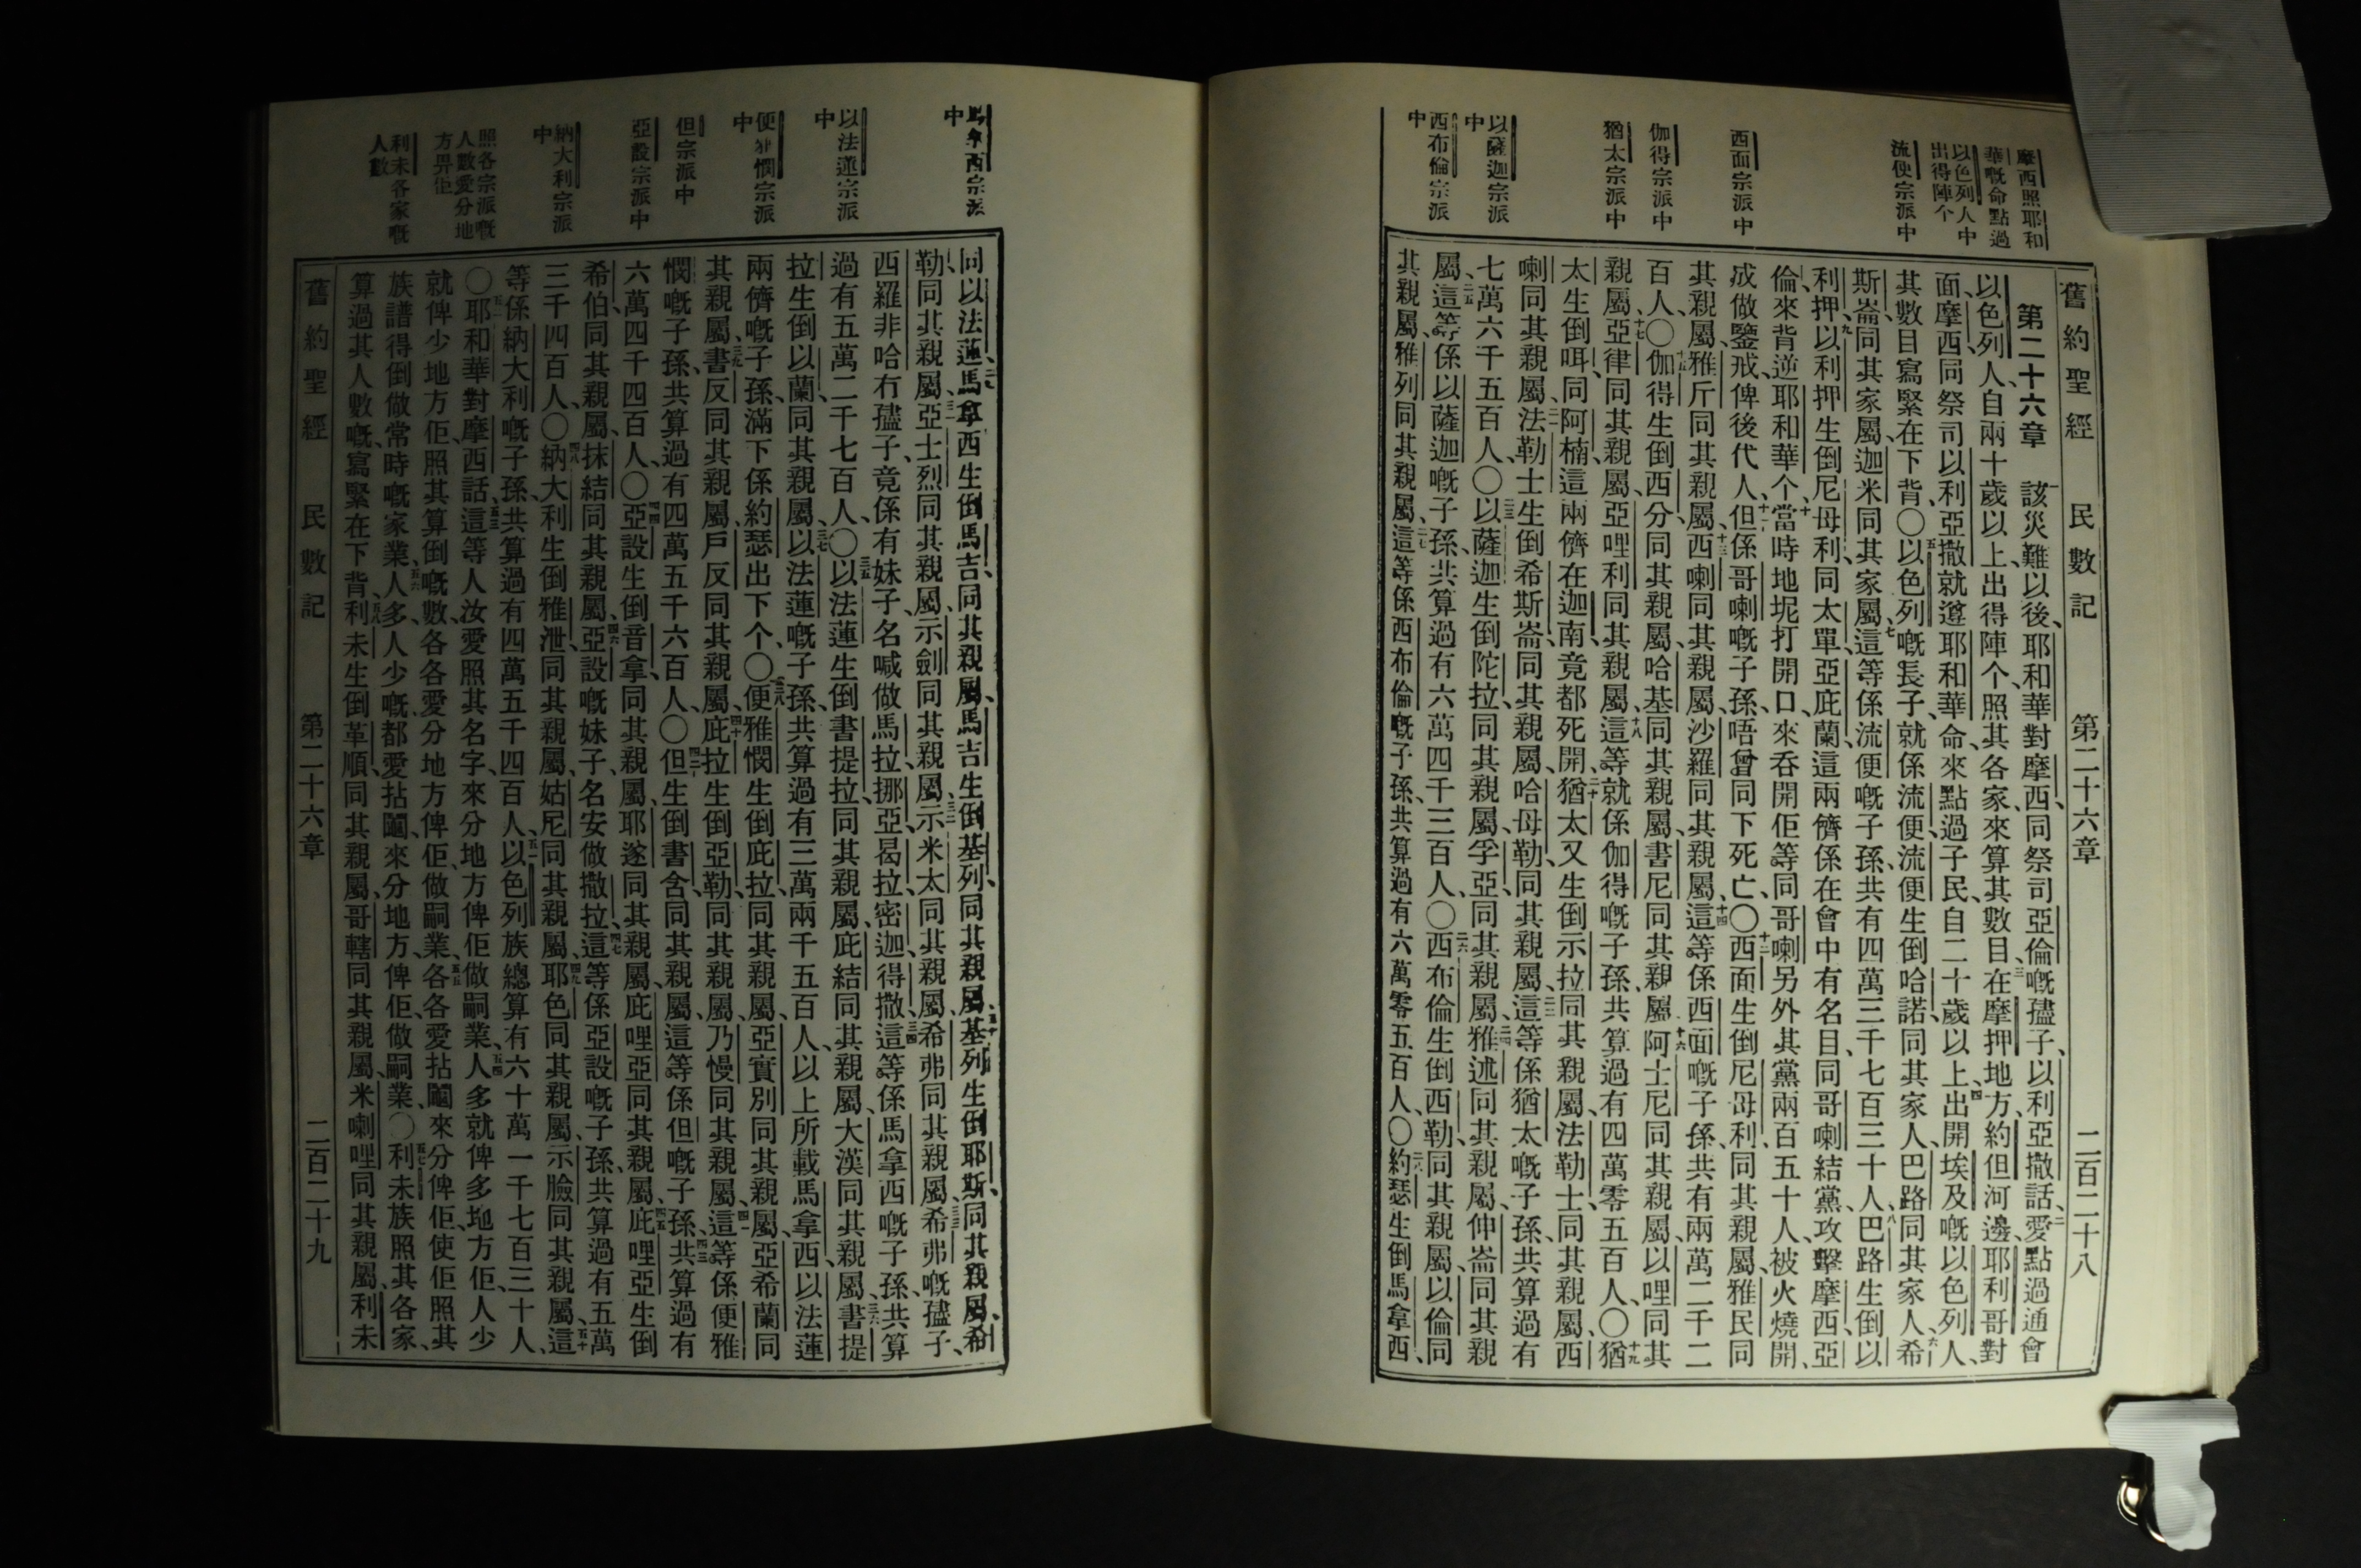 舊約聖經　民數記　第二十六章　二百二十八
摩西照耶和
華嘅命點過
以色列人中
出得陣个
流便宗派中
西面宗派中
伽得宗派中
猶太宗派中
以薩迦宗派
中
西布倫宗派
中
第二十六章　該災難以後、耶和華對摩西同祭司亞倫嘅𡥧子、以利亞撒話、二愛點過通會
以色列人、自兩十歲以上、出得陣个、照其各家、來算其數目、三在摩押地方、約但河邊、耶利哥對
面、摩西同祭司以利亞撒就遵耶和華命、來點過子民、自二十歲以上、四出開埃及嘅以色列人、
其數目寫緊在下背、〇五以色列嘅長子、就係流便、流便生倒哈諾同其家人、巴路同其家人、六希
斯崙同其家屬、迦米同其家屬、七這等係流便嘅子孫、共有四萬三千七百三十人、八巴路生倒以
利押、九以利押生倒尼母利、同太單、亞庇蘭、這兩儕係在會中有名目、同哥喇結黨、攻擊摩西、亞
倫、來背逆耶和華个、十當時地坭打開口、來吞開佢等、同哥喇、另外其黨兩百五十人、被火燒開、
成做鑒戒、俾後代人、十一但係哥喇嘅子孫、唔曾同下死亡、〇十二西面生倒尼母利、同其親屬、雅民同
其親屬、雅斤同其親屬、十三西喇同其親屬、沙羅同其親屬、十四這等係西面嘅子孫、共有兩萬二千二
百人、〇十五伽得生倒西分同其親屬、哈基同其親屬、書尼同其親屬、十六阿士尼同其親屬、以哩同其
親屬、十七亞律同其親屬、亞哩利同其親屬、十八這等就係伽得嘅子孫、共算過有四萬零五百人、〇十九猶
太生倒咡、同阿楠、這兩儕在迦南、竟都死開、二十猶太又生倒示拉同其親屬、法勒士、同其親屬、西
喇同其親屬、二一法勒士生倒希斯崙、同其親屬、哈母勒、同其親屬、二二這等係猶太嘅子孫、共算過有
七萬六千五百人、〇二三以薩迦生倒陀拉、同其親屬、孚亞、同其親屬、二四雅述同其親屬、伸崙同其親
屬、二五這等係以薩迦嘅子孫、共算過有六萬四千三百人、〇二六西布倫生倒西勒、同其親屬、以倫同
其親屬、雅列同其親屬、二七這等係西布倫嘅子孫、共算過有六萬零五百人、〇二八約瑟生倒馬拿西、
中
以法蓮宗派
中
便雅憫宗派
中
但宗派中
亞設宗派中
納大利宗派
中
照各宗派嘅
人數愛分地
方畀佢
利未各家嘅
人數
同以法蓮、二九馬拿西生倒馬吉、同其親屬、馬吉生倒基列、同其親屬、三十基列生倒耶斯、同其親屬、希
勒、同其親屬、三一亞士烈同其親屬、示劍同其親屬、三二示米太同其親屬、希弗同其親屬、三三希弗嘅𡥧子、
西羅非哈冇𡥧子、竟係有妹子、名喊做馬拉、挪亞、曷拉、密迦、得撒、三四這等係馬拿西嘅子孫、共算
過有五萬二千七百人、〇三五以法蓮生倒書提拉、同其親屬、庇結同其親屬、大漢同其親屬、三六書提
拉生倒以蘭、同其親屬、三七以法蓮嘅子孫、共算過有三萬兩千五百人、以上所載馬拿西、以法蓮
兩儕嘅子孫、滿下係約瑟出下个、〇三八便雅憫生倒庇拉、同其親屬、亞實別同其親屬、亞希蘭同
其親屬、三九書反同其親屬、戶反同其親屬、四十庇拉生倒亞勒、同其親屬、乃慢同其親屬、四一這等係便雅
憫嘅子孫、共算過有四萬五千六百人、〇四二但生倒書含、同其親屬、這等係但嘅子孫、四三共算過有
六萬四千四百人、〇四四亞設生倒音拿、同其親屬、耶遂同其親屬、庇哩亞同其親屬、四五庇哩亞生倒
希伯、同其親屬、抹結同其親屬、四六亞設嘅妹子、名安做撒拉、四七這等係亞設嘅子孫、共算過有五萬
三千四百人、〇四八納大利生倒雅泄、同其親屬、姑尼同其親屬、四九耶色同其親屬、示臉同其親屬、五十這
等係納大利嘅子孫、共算過有四萬五千四百人、五一以色列族總算有六十萬一千七百三十人、
〇五二耶和華對摩西話、五三這等人汝愛照其名字、來分地方俾佢做嗣業、五四人多就俾多地方佢、人少
就俾少地方佢、照其算倒嘅數、各各愛分地方俾佢、做嗣業、五五各各愛拈鬮來分俾佢、使佢照其
族譜得倒做常時嘅家業、五六人多、人少嘅、都愛拈鬮、來分地方、俾佢、做嗣業、〇五七利未族照其各家、
算過其人數嘅、寫緊在下背、五八利未生倒革順、同其親屬、哥轄同其親屬、米喇哩同其親屬、利未
舊約聖經　民數記　第二十六章　二百二十九